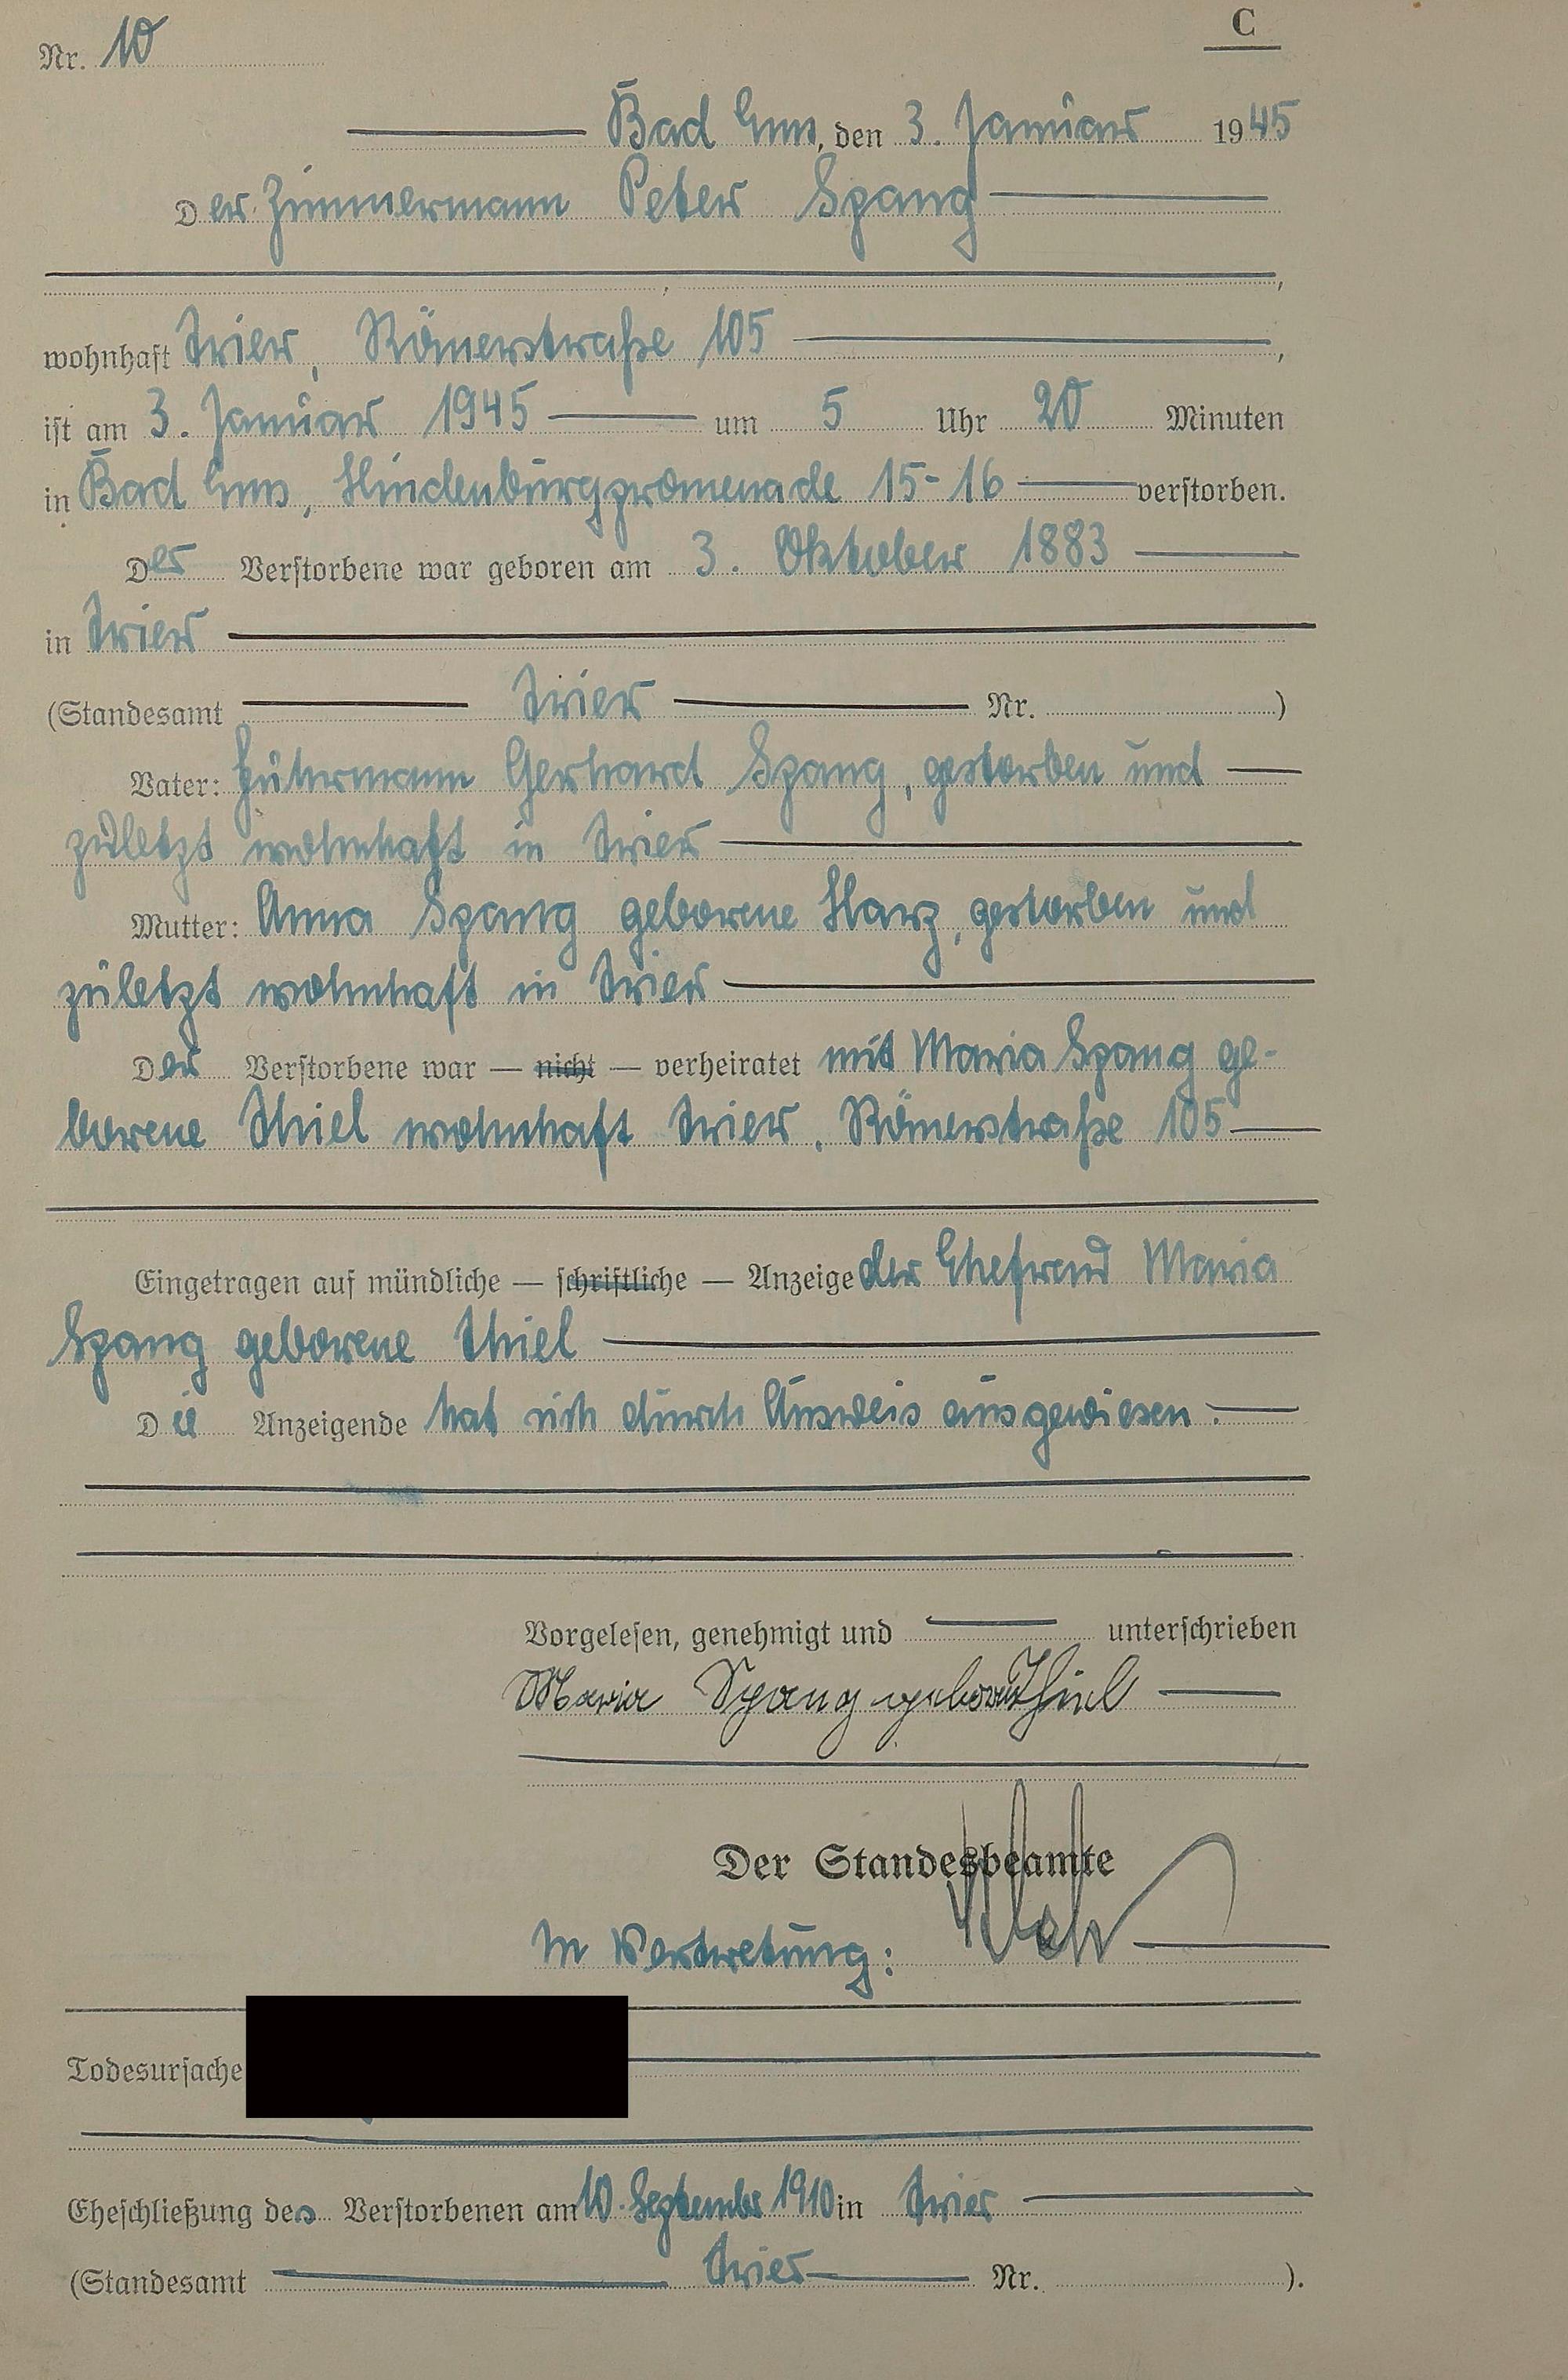 C
Nr. 10
Bad Ems, den 3. Januar 1945
Der Zimmermann Peter Spang
wohnhaft Trier, Römerstraße 105,
ist am 3. Januar 1945 um 5 Uhr 20 Minuten
in Bad Ems, Hindenburgpromenade 15-16 verstorben.
Der Verstorbene war geboren am 3. Oktober 1883
in Trier
(Standesamt Trier Nr. )
Vater: Fuhrmann Gerhard Spang, gestorben und
zuletzt wohnhaft in Trier
Mutter: Anna Spang geborene Harz, gestorben und
zuletzt wohnhaft in Trier
Der Verstorbene war — nicht — verheiratet mit Maria Spang ge-
borene Thiel wohnhaft Trier, Römerstraße 105
Eingetragen auf mündliche — schriftliche — Anzeige der Ehefrau Maria
Spang geborene Thiel
Die Anzeigende hat sich durch Ausweis ausgewiesen.
Vorgelesen, genehmigt und unterschrieben
Maria Spang geborne Thiel
Der Standesbeamte
In Vertretung:
Todesursache
Eheschließung des Verstorbenen am 10. September 1910 in Trier
(Standesamt Trier Nr. ).